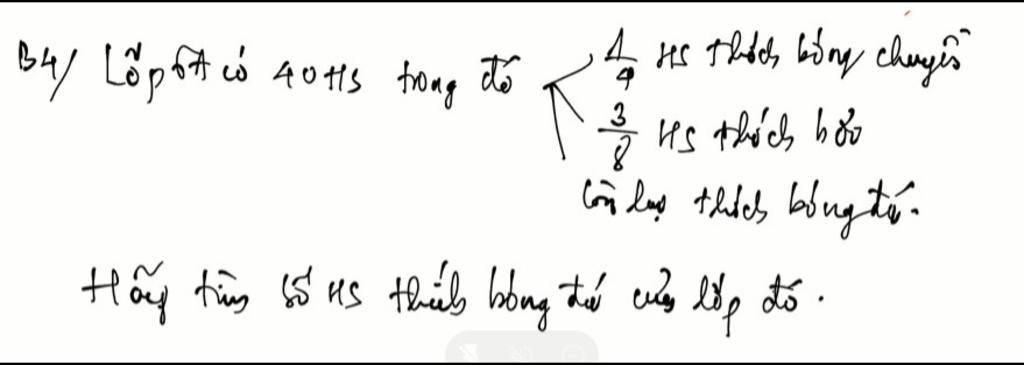 B4/ Lớp 6A có 40 HS trong đó
1/4 HS thích bóng chuyền
3/8 HS thích bơi
Còn lại thích bóng đá.
Hãy tìm số HS thích bóng đá của lớp đó.